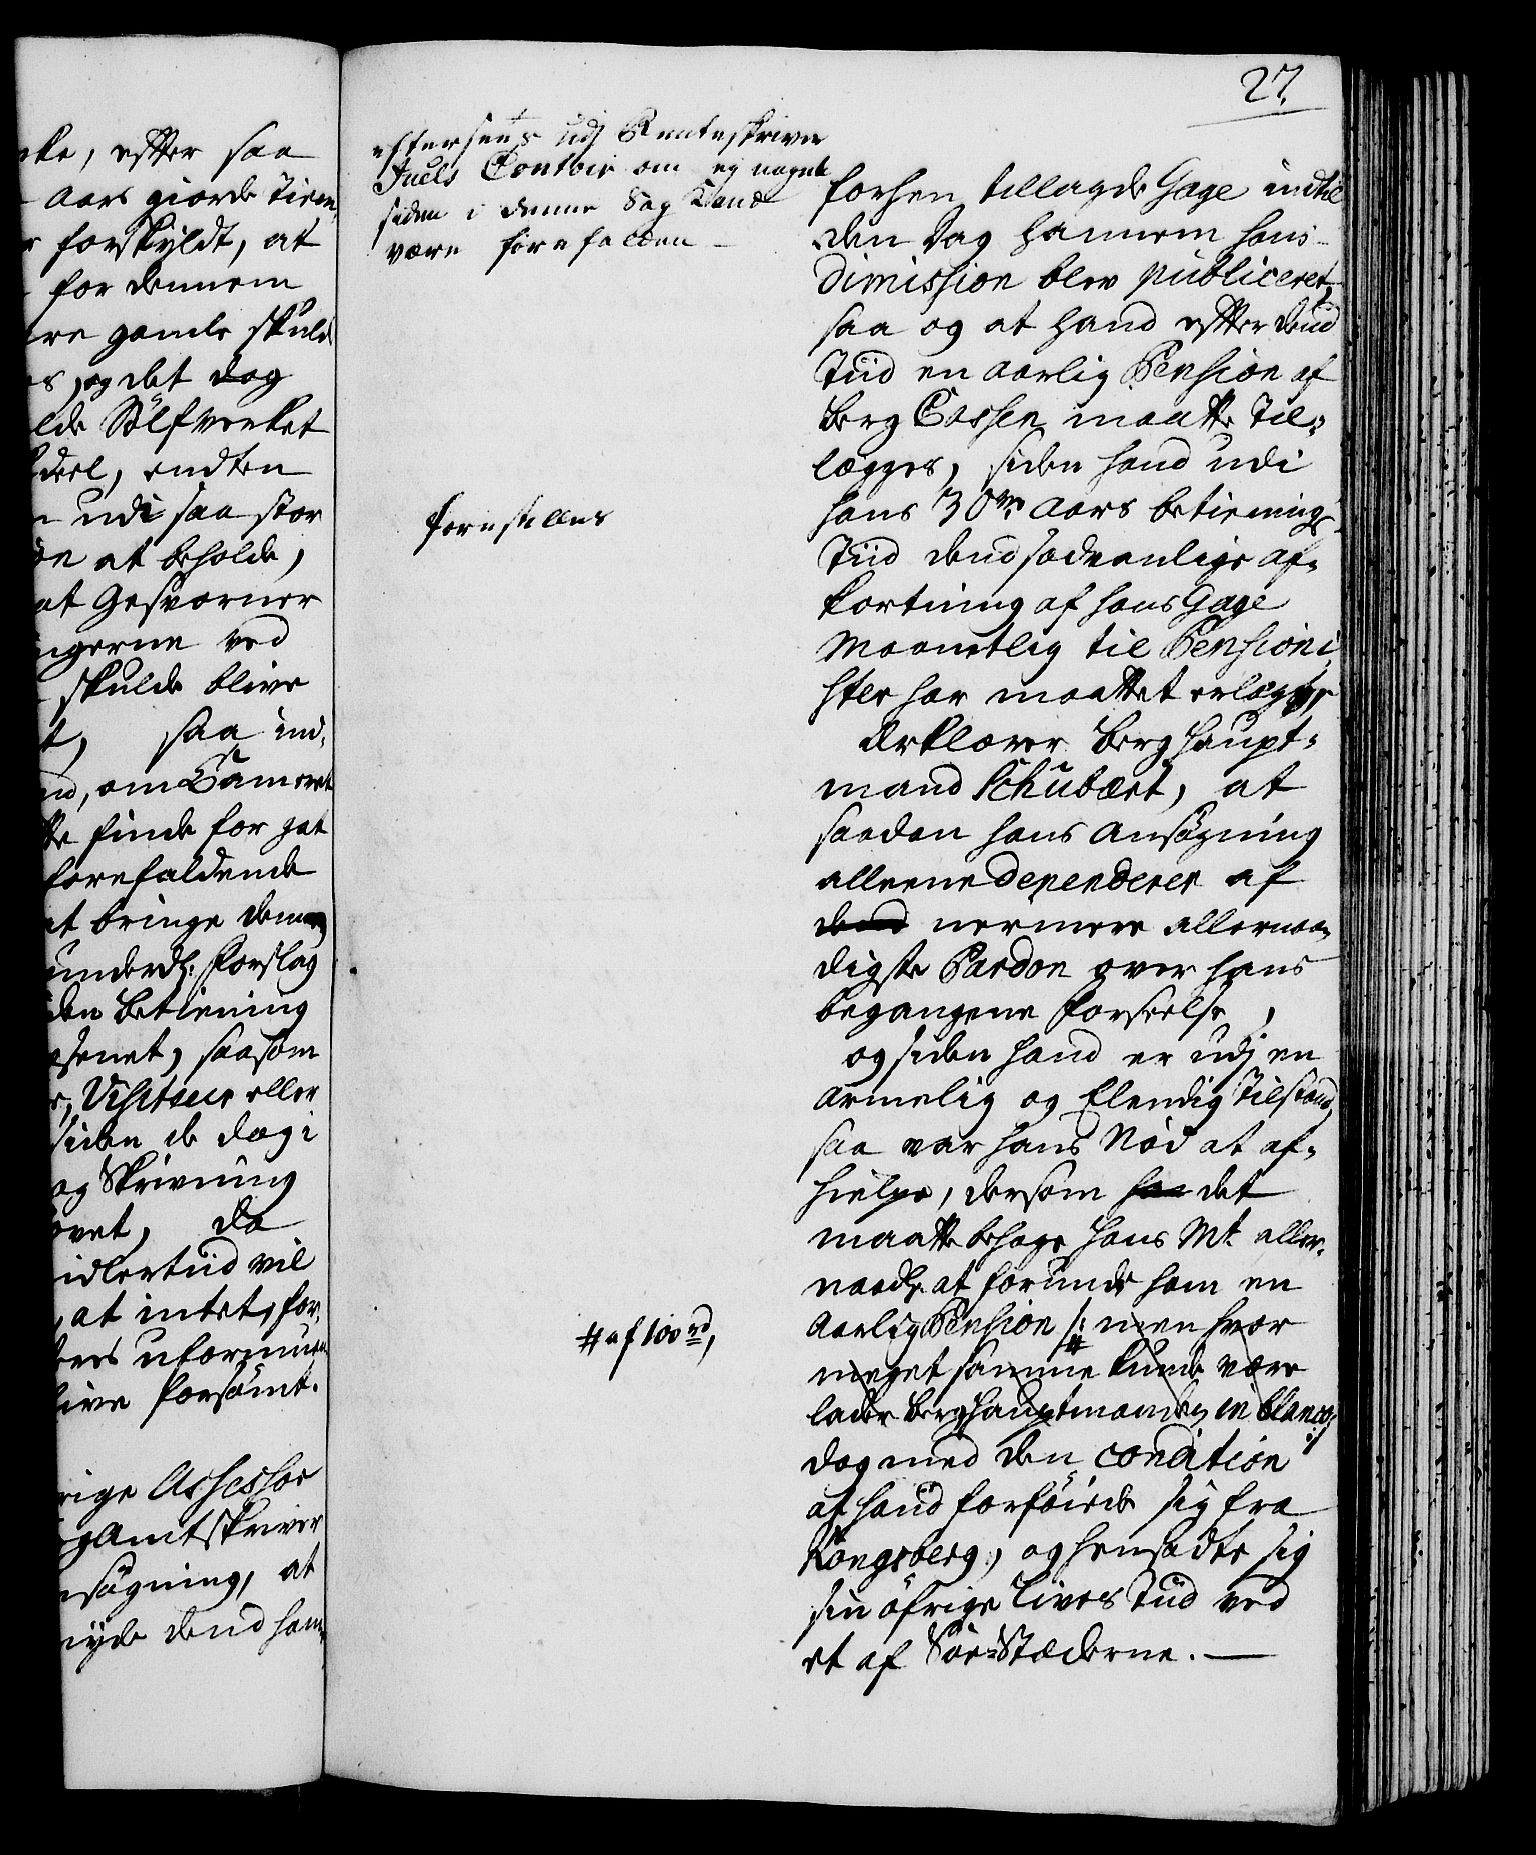 27.
cke, efter saa
Aars giorde Tienn
forskyldt, at
for dennem
gamle skuld
, og det dog
lde Sølfverket
deel, endten
udi saa stor
at beholde,
at Gesvorner
ngerne ved
skulde blive
t, saa ind-
nd, om Cameret
finde for got
forefaldende
at bringe dem
underd: Forslag
den betiening
senet, saasom
Visiteur eller
siden de dog i
og Skrivning
vet, da
idlertiid vil
, at intet, for
uformuen
live forsømt.
rige Assessor
gAmtskriver
nsøgning, at
niyde dend ham
efterseets udj Renteskriver
Juels Contoir om ej noget
siden i denne Sag Kand
være forefalden —
forestilles
# af 100 rd,
forhen tillagde Gage indtil
den Dag hannem hans
Dimission blev publiceret,
saa og at hand efter dend
Tiid en aarlig Pension af
Berg Cassen maatte til-
legges, siden hand udi
hans 30ve Aars betienings
Tiid dend sædvanlige af-
kortning af hans Gage
Maanetlig til Pensioni-
ster har maattet erlegge,
Erklærer Berg Haupt-
mand Schubært, at
saadan hans Ansøgning
alleene dependerer af
dend nermere allernaa-
digste Pardon over hans
begangene forseelse,
og siden hand er udj en
armelig og Elendig Tilstand,
saa var hans Nød at af-
hielpe, dersom det
maatte behage Hans Mt. aller-
naadst at forunde ham en
Aarlig Pension /: # men hvor
meget samme kunde være
lader Berghauptmanden in blanco:/
dog med den condition
at hand forføiede sig fra
Kongsberg, og hensadte sig
sin øfrige Lives Tiid ved
et af Søe-Stæderne. —